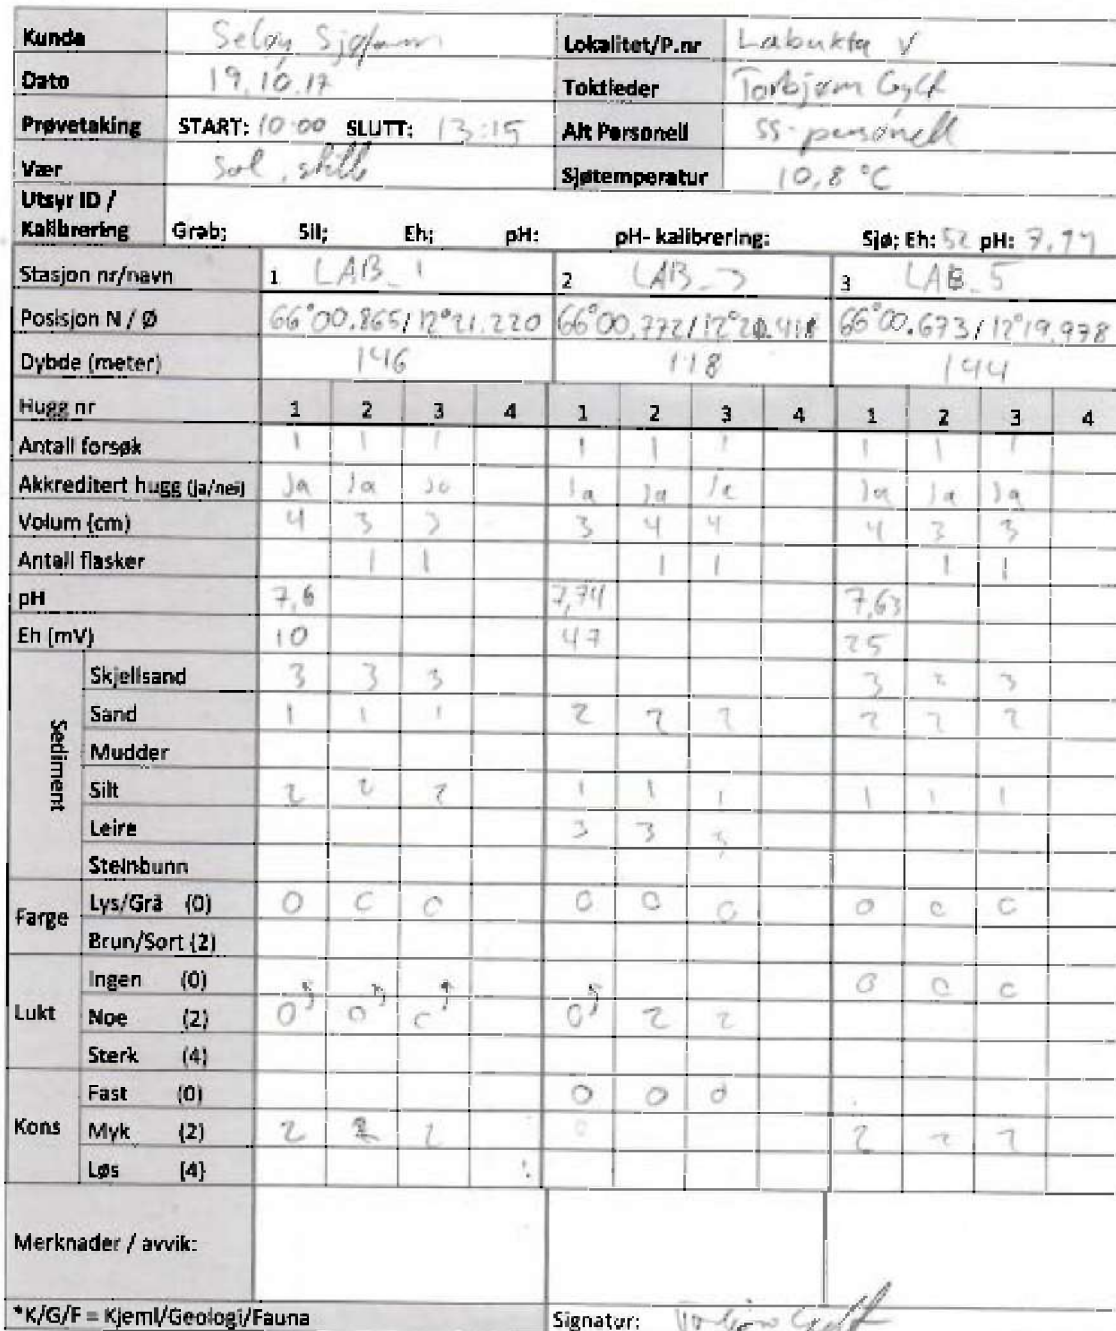 Kunde Seløy Sjøfarm Lokalitet/P.nr Labukta V
Dato 19.10.17 Toktleder Torbjørn Gylt
Prøvetaking START: 10:00 SLUTT: 13:15 Alt Personell SS-personell
Vær Sol, stille Sjøtemperatur 10,8 °C
Utsyr ID /
Kalibrering Grab; Sil; Eh; pH: pH- kalibrering: Sjø; Eh: 52 pH:
Stasjon nr/navn 1 LAB_1 2 LAB_3 3 LAB_5
Posisjon N / Ø 66°00.865/12°21.220 66°00.772/ 66°00.673/12°19.978
Dybde (meter) 146 118 144
Hugg nr 1 2 3 4 1 2 3 4 1 2 3 4
Antall forsøk 1 1 1 1 1 1 1 1 1
Akkreditert hugg (ja/nei) Ja Ja Ja Ja Ja Ja Ja Ja Ja
Volum (cm) 4 3 3 3 4 4 4 3 3
Antall flasker 1 1 1 1 1 1
pH 7,6 7,74 7,63
Eh (mV) 10 47 25
Sediment
Skjellsand 3 3 3 3 3 3
Sand 1 1 1 2 2 2 2 2 2
Mudder
Silt 2 2 2 1 1 1 1 1 1
Leire 3 3 3
Steinbunn
Farge Lys/Grå (0) 0 0 0 0 0 0 0 0 0
Brun/Sort (2)
Lukt Ingen (0) 0 0 0
Noe (2) 0 0 0 0 2 2
Sterk (4)
Kons Fast (0) 0 0 0
Myk (2) 2 2 2 0 2 2 2
Løs (4)
Merknader / avvik:
*K/G/F = Kjemi/Geologi/Fauna Signatur: Torbjørn Gylt